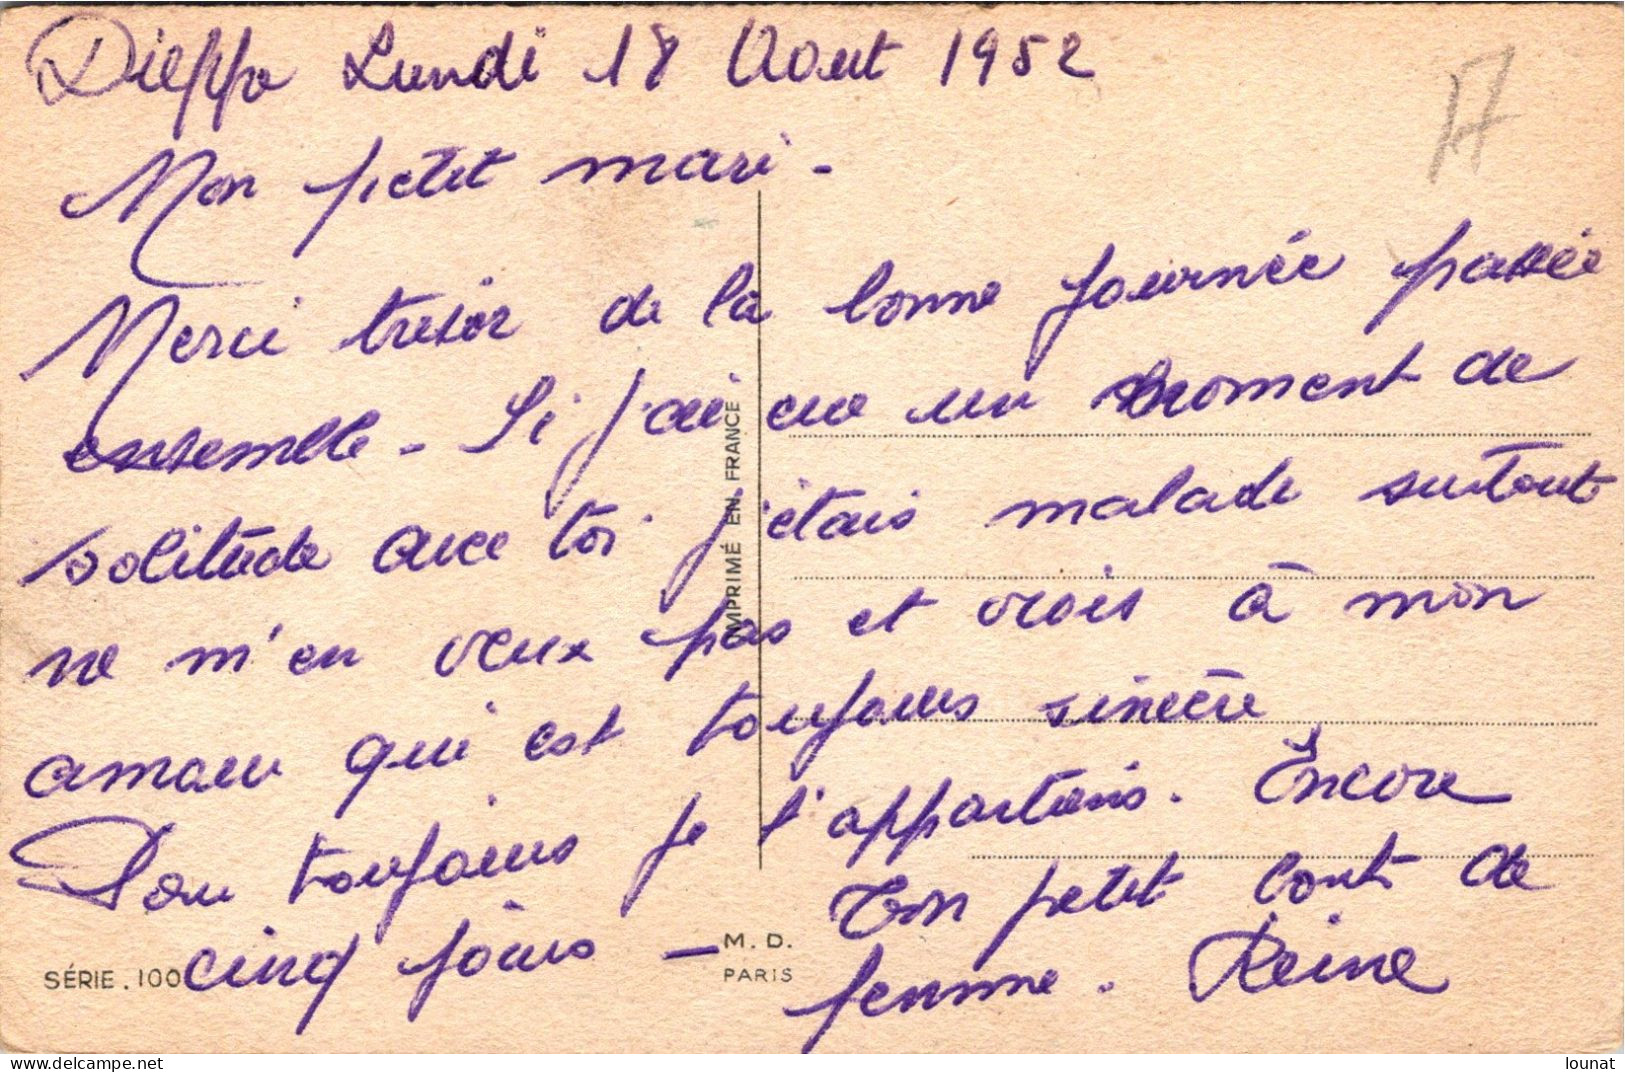 Dieppe Lundi 18 Aout 1952
Mon petit mari -
Merci trésor de la bonne journée passée
ensemble - Si j'ai eu un moment de
solitude avec toi j'étais malade surtout
ne m'en veux pas et crois à mon
amour qui est toujours sincère
Pour toujours je t'appartiens. Encore
cinq jours - Ton petit bout de
femme. Reine
17
IMPRIMÉ EN FRANCE
SÉRIE. 100
M. D.
PARIS
lounat